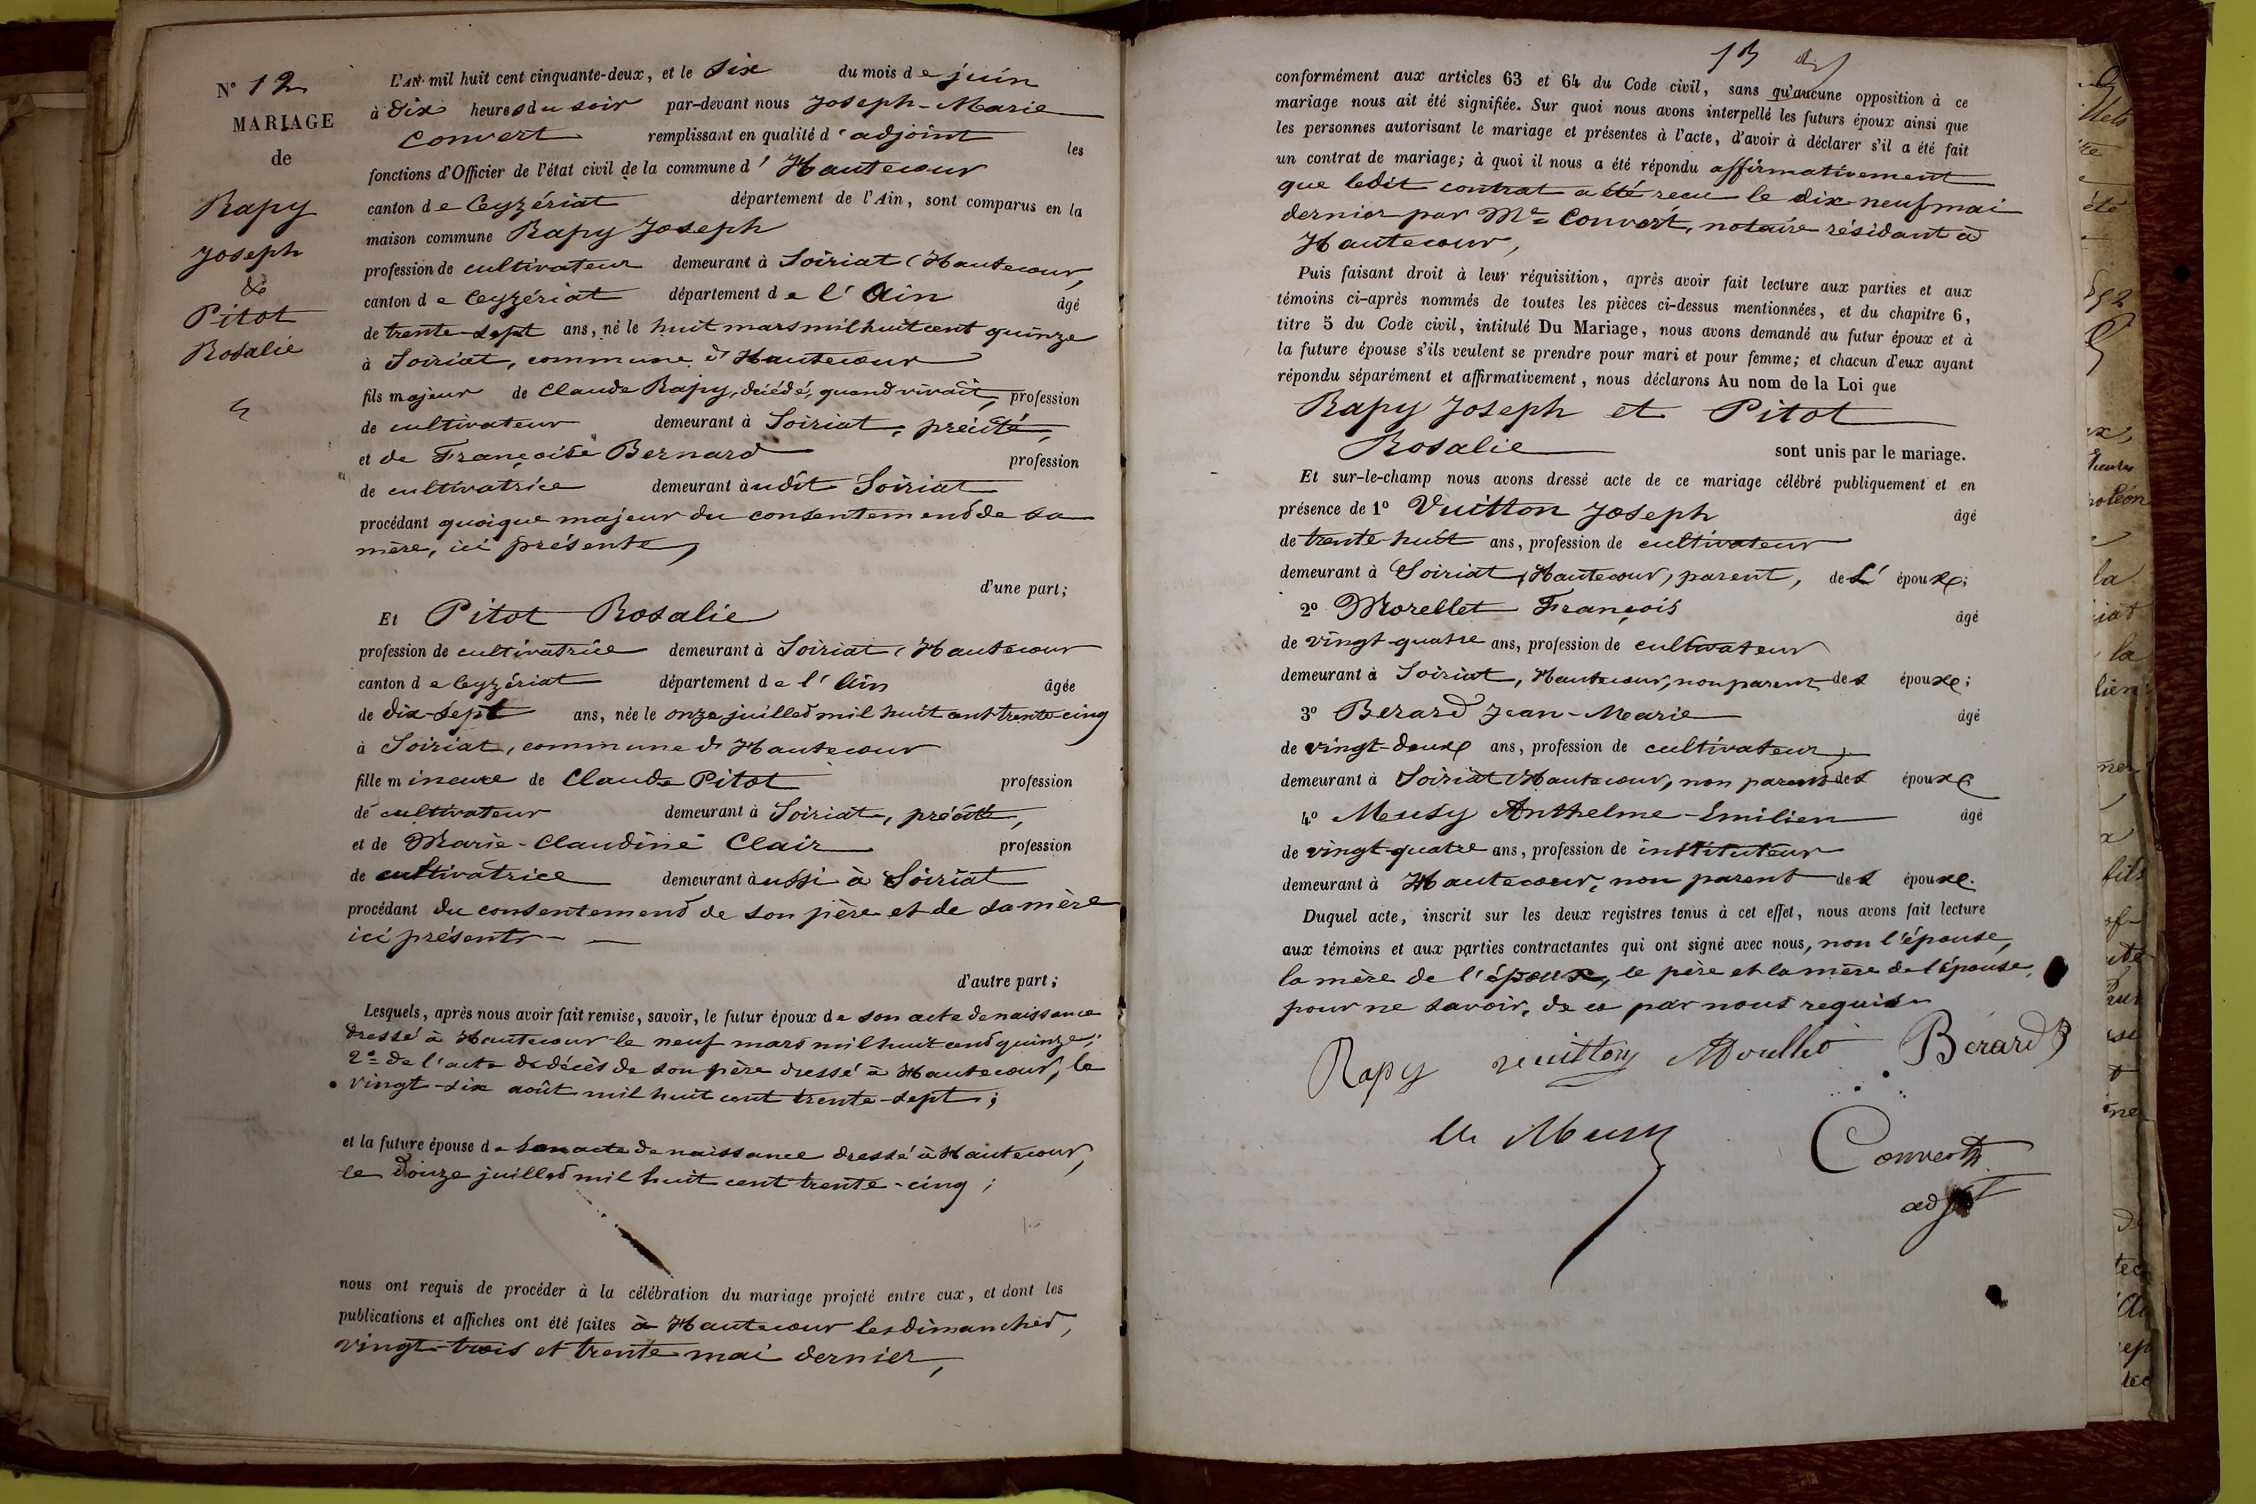 N° 12
MARIAGE
de
Rapy
Joseph
&
Pitot
Rosalie
L'AN mil huit cent cinquante-deux, et le six du mois de juin
à dix heures du soir par-devant nous Joseph-Marie
Convert remplissant en qualité d'adjoint les
fonctions d'Officier de l'état civil de la commune d'Hautecour
canton de Ceyzériat département de l'Ain, sont comparus en la
maison commune Rapy Joseph
profession de cultivateur demeurant à Soiriat (Hautecour,
canton de Ceyzériat département de l'Ain âgé
de trente-sept ans, né le huit mars mil huit cent quinze
à Soiriat, commune d'Hautecour
fils majeur de Claude Rapy, décédé, quand vivait, profession
de cultivateur demeurant à Soiriat, précité,
et de Françoise Bernard profession
de cultivatrice demeurant audit Soiriat
procédant quoique majeur du consentement de sa
mère, ici présente,
d'une part;
Et Pitot Rosalie
profession de cultivatrice demeurant à Soiriat (Hautecour
canton de Ceyzériat département de l'Ain âgée
de dix-sept ans, née le onze juillet mil huit cent trente-cinq
à Soiriat, commune d'Hautecour
fille mineure de Claude Pitot profession
de cultivateur demeurant à Soiriat, précité,
et de Marie-Claudine Clair profession
de cultivatrice demeurant aussi à Soiriat
procédant du consentement de son père et de sa mère
ici présents
d'autre part;
Lesquels, après nous avoir fait remise, savoir, le futur époux de son acte de naissance
dressé à Hautecour le neuf mars mil huit cent quinze;
2° de l'acte de décès de son père dressé à Hautecour, le
vingt-six août mil huit cent trente-sept;
et la future épouse de son acte de naissance dressé à Hautecour,
le douze juillet mil huit cent trente-cinq;
nous ont requis de procéder à la célébration du mariage projeté entre eux, et dont les
publications et affiches ont été faites à Hautecour les dimanches,
vingt-trois et trente mai dernier,
13
conformément aux articles 63 et 64 du Code civil, sans qu'aucune opposition à ce
mariage nous ait été signifiée. Sur quoi nous avons interpellé les futurs époux ainsi que
les personnes autorisant le mariage et présentes à l'acte, d'avoir à déclarer s'il a été fait
un contrat de mariage; à quoi il nous a été répondu affirmativement
que ledit contrat a été recu le dix-neuf mai
dernier par Me Convert, notaire résidant à
Hautecour,
Puis faisant droit à leur réquisition, après avoir fait lecture aux parties et aux
témoins ci-après nommés de toutes les pièces ci-dessus mentionnées, et du chapitre 6,
titre 5 du Code civil, intitulé Du Mariage, nous avons demandé au futur époux et à
la future épouse s'ils veulent se prendre pour mari et pour femme; et chacun d'eux ayant
répondu séparément et affirmativement, nous déclarons Au nom de la Loi que
Rapy Joseph et Pitot
Rosalie sont unis par le mariage.
Et sur-le-champ nous avons dressé acte de ce mariage célébré publiquement et en
présence de 1° Vuitton Joseph âgé
de trente-huit ans, profession de cultivateur
demeurant à Soiriat, (Hautecour, parent, de L' époux;
2° Morellet François âgé
de vingt-quatre ans, profession de cultivateur
demeurant à Soiriat, Hautecour, non parent des époux;
3° Berard Jean-Marie âgé
de vingt-deux ans, profession de cultivateur,
demeurant à Soiriat (Hautecour, non parent des époux
4° Meusy Anthelme-Emilien âgé
de vingt-quatre ans, profession de instituteur
demeurant à Hautecour, non parent des époux.
Duquel acte, inscrit sur les deux registres tenus à cet effet, nous avons fait lecture
aux témoins et aux parties contractantes qui ont signé avec nous, non l'épouse,
la mère de l'époux, le père et la mère de l'épouse,
pour ne savoir, de ce par nous requis.
Rapy vuitton Morellet Bérard
Meusy
Convert
adjt